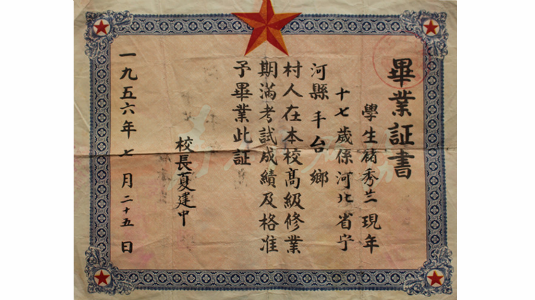 畢業証書
學生褚秀兰現年
十七歲係河北省宁
河縣丰台鄉
村人在本校高級修業
期滿考試成績及格准
予畢業此証
校長夏建中
一九五六年七月二十五日